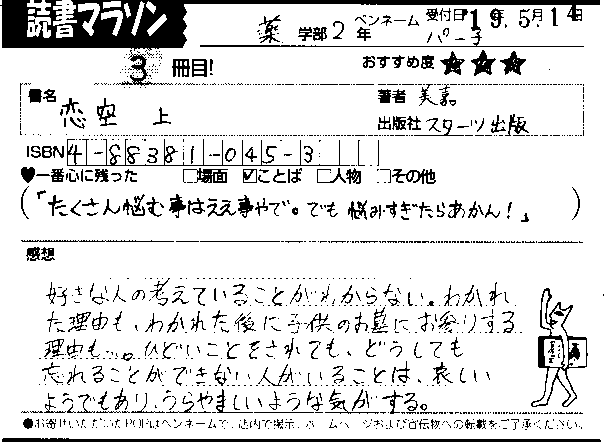 読書マラソン
薬 学部 2 年 ペンネーム パー子 受付日 '19.5月14日
3 冊目! おすすめ度 ★★★
書名 恋空 上
著者 美嘉
出版社 スターツ出版
ISBN 4-88381-045-3
♥一番心に残った □場面 ☑ことば □人物 □その他
(「たくさん悩む事はええ事やで。でも悩みすぎたらあかん!」)
感想
好きな人の考えていることがわからない。わかれ
た理由も、わかれた後に子供のお墓にお参りする
理由も…。ひどいことをされても、どうしても
忘れることができない人がいることは、哀しい
ようでもあり、うらやましいような気がする。
●お寄せいただいたPOPはペンネームで、店内で掲示、ホームページおよび宣伝物への転載をご了承ください。